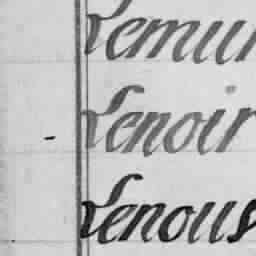 Lemur
Lenoir
Lenous